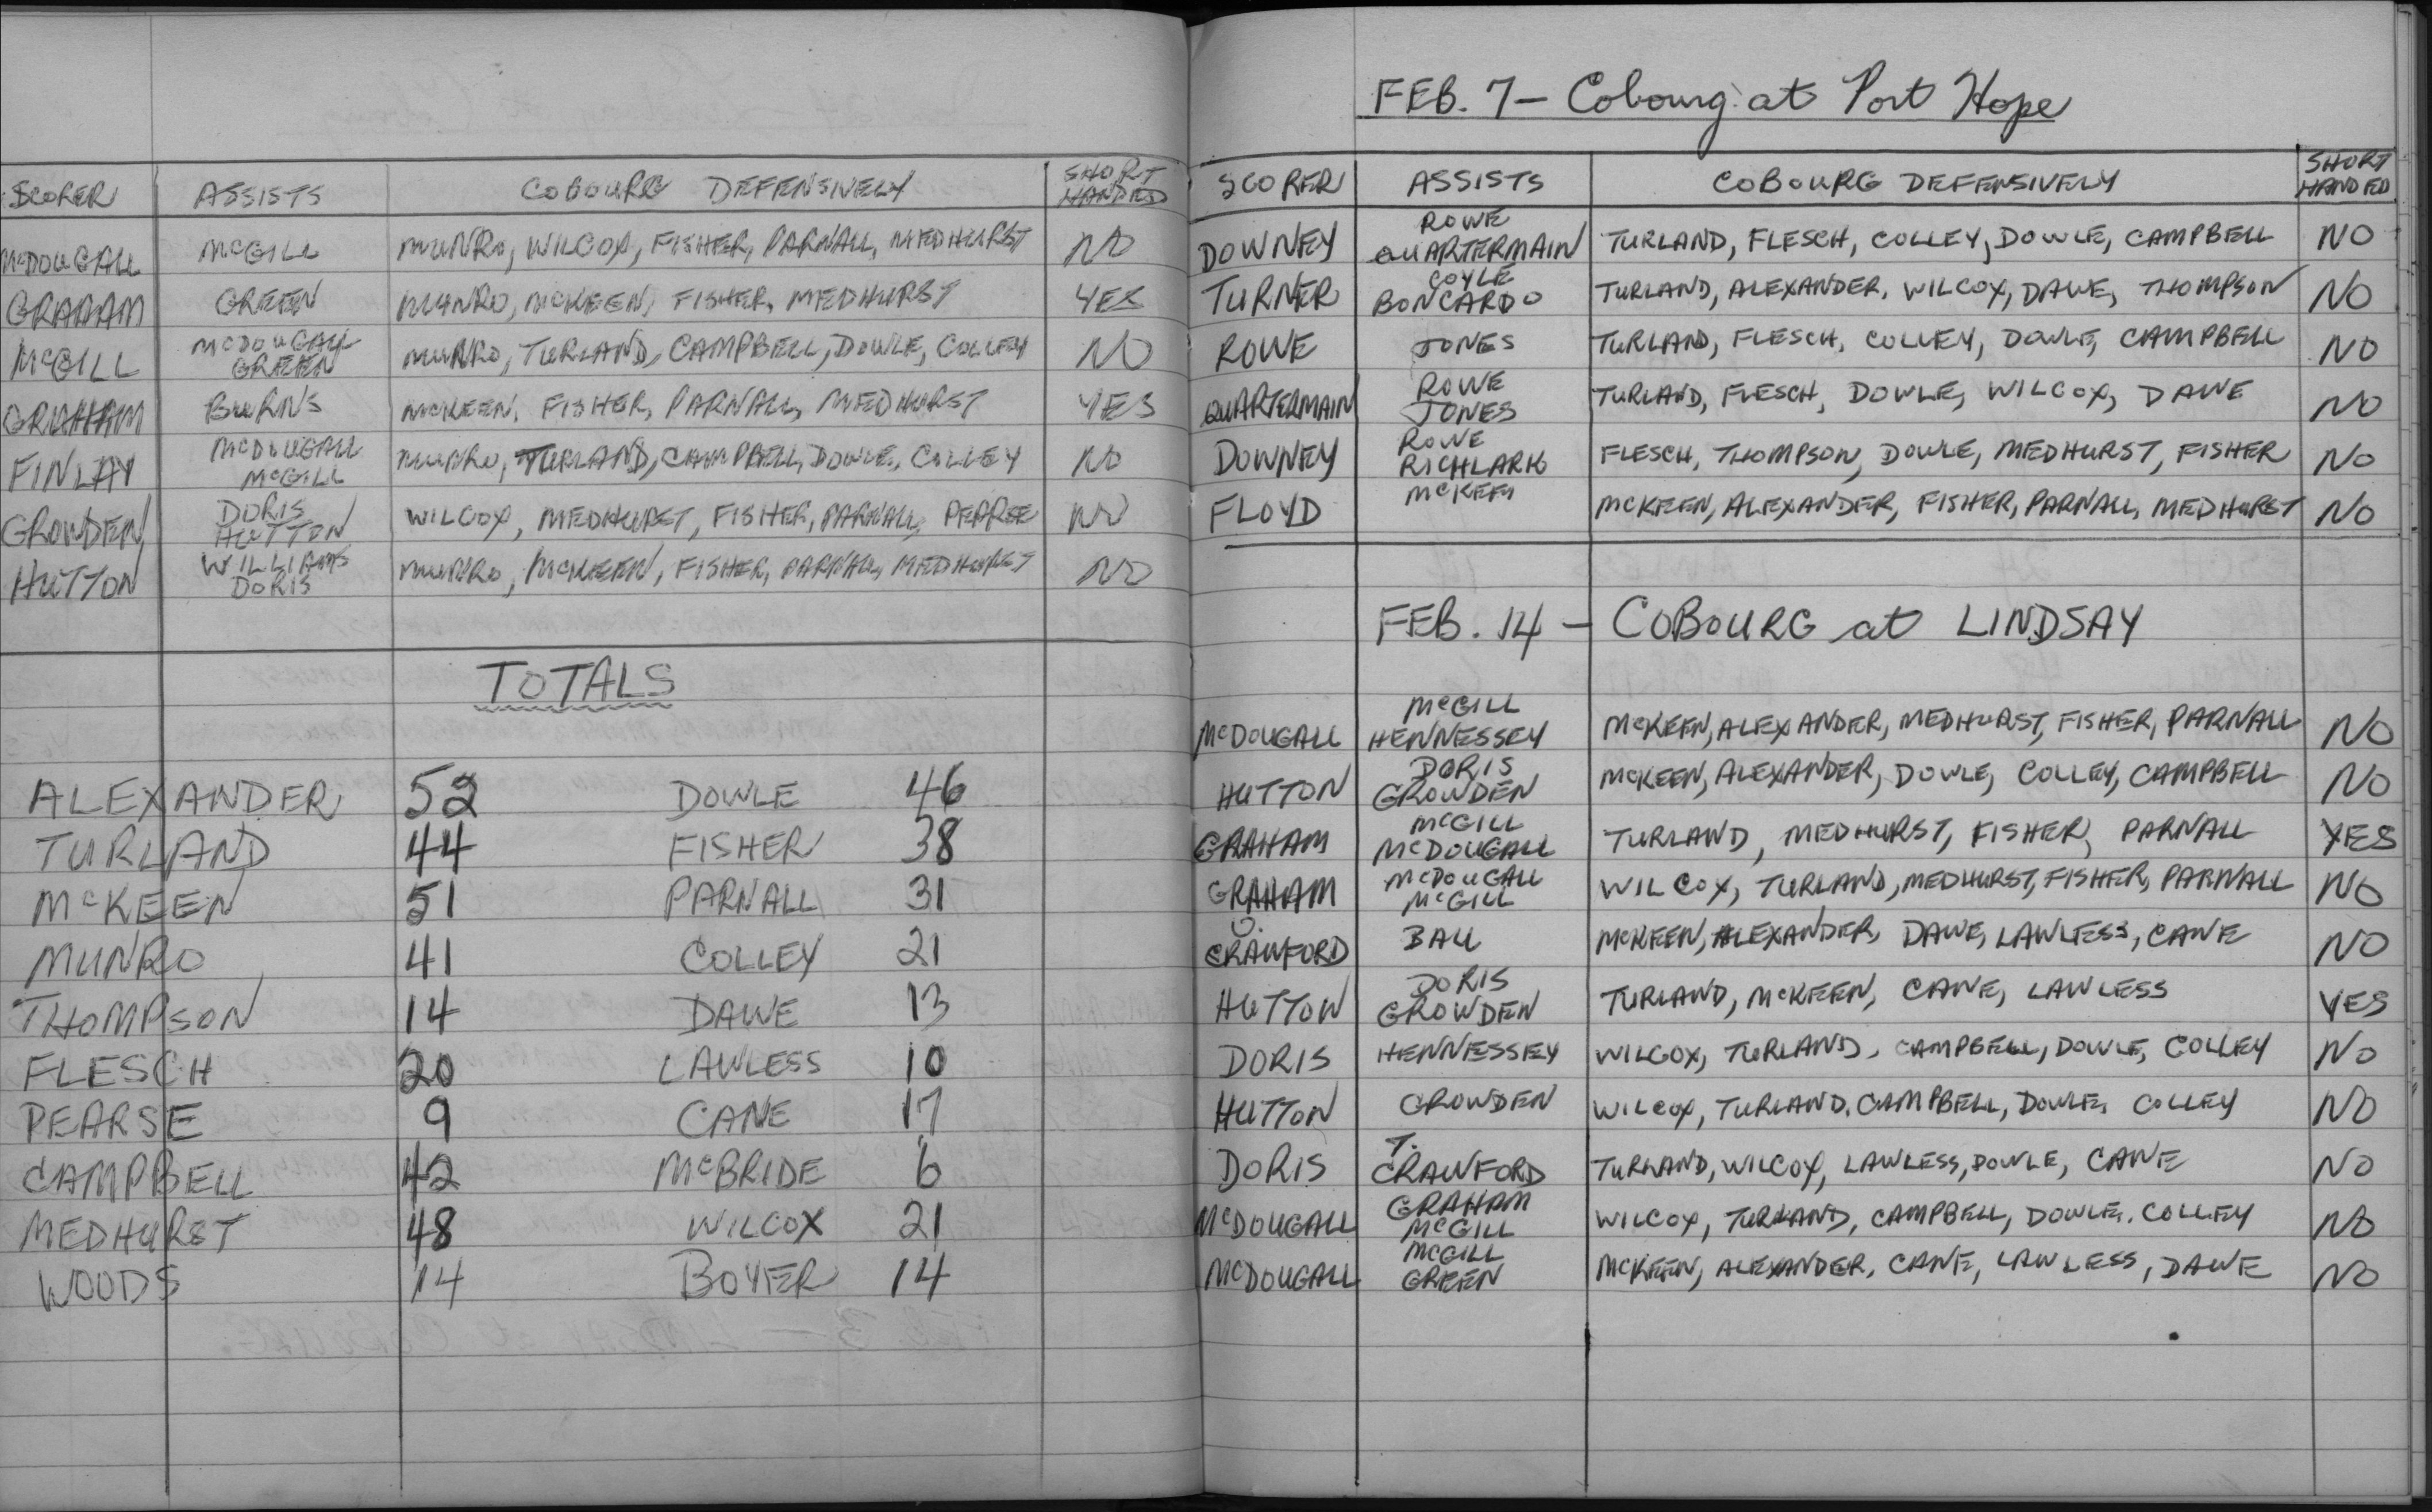 SCORER ASSISTS COBOURG DEFENSIVELY SHORT HANDED
McDOUGALL McGILL MUNRO, WILCOX, FISHER, PARNALL, MEDHURST NO
GRAHAM GREEN MUNRO, MCKEEN, FISHER, MEDHURST YES
McGILL McDOUGALL GREEN MUNRO, TURLAND, CAMPBELL, DOWLE, COLLEY NO
GRAHAM BURNS MCKEEN, FISHER, PARNALL, MEDHURST YES
FINLAY McDOUGALL McGILL MUNRO, TURLAND, CAMPBELL, DOWLE, COLLEY NO
GROWDEN DORIS HUTTON WILCOX, MEDHURST, FISHER, PARNALL, PEARSE NO
HUTTON WILLIAMS DORIS MUNRO, MCKEEN, FISHER, PARNALL, MEDHURST NO
TOTALS
ALEXANDER 52 DOWLE 46
TURLAND 44 FISHER 38
McKEEN 51 PARNALL 31
MUNRO 41 COLLEY 21
THOMPSON 14 DAWE 13
FLESCH 20 LAWLESS 10
PEARSE 9 CANE 17
CAMPBELL 42 McBRIDE 6
MEDHURST 48 WILCOX 21
WOODS 14 BOYER 14
FEB. 7 - Cobourg at Port Hope
SCORER ASSISTS COBOURG DEFENSIVELY SHORT HANDED
DOWNEY ROWE QUARTERMAIN TURLAND, FLESCH, COLLEY, DOWLE, CAMPBELL NO
TURNER COYLE BONCARDO TURLAND, ALEXANDER, WILCOX, DAWE, THOMPSON NO
ROWE JONES TURLAND, FLESCH, COLLEY, DOWLE, CAMPBELL NO
QUARTERMAIN ROWE JONES TURLAND, FLESCH, DOWLE, WILCOX, DAWE NO
DOWNEY ROWE RICHLARK FLESCH, THOMPSON, DOWLE, MEDHURST, FISHER NO
FLOYD MCKEEN, ALEXANDER, FISHER, PARNALL, MEDHURST NO
FEB. 14 - COBOURG at LINDSAY
McDOUGALL McGILL HENNESSEY McKEEN, ALEXANDER, MEDHURST, FISHER, PARNALL NO
HUTTON DORIS GROWDEN McKEEN, ALEXANDER, DOWLE, COLLEY, CAMPBELL NO
GRAHAM McGILL McDOUGALL TURLAND, MEDHURST, FISHER, PARNALL YES
GRAHAM McDOUGALL McGILL WILCOX, TURLAND, MEDHURST, FISHER, PARNALL NO
CRAWFORD BALL McKEEN, ALEXANDER, DAWE, LAWLESS, CANE NO
HUTTON DORIS GROWDEN TURLAND, McKEEN, CANE, LAWLESS YES
DORIS HENNESSEY WILCOX, TURLAND, CAMPBELL, DOWLE, COLLEY NO
HUTTON GROWDEN WILCOX, TURLAND, CAMPBELL, DOWLE, COLLEY NO
DORIS T. CRAWFORD TURLAND, WILCOX, LAWLESS, DOWLE, CANE NO
McDOUGALL GRAHAM McGILL WILCOX, TURLAND, CAMPBELL, DOWLE, COLLEY NO
McDOUGALL McGILL GREEN McKEEN, ALEXANDER, CANE, LAWLESS, DAWE NO